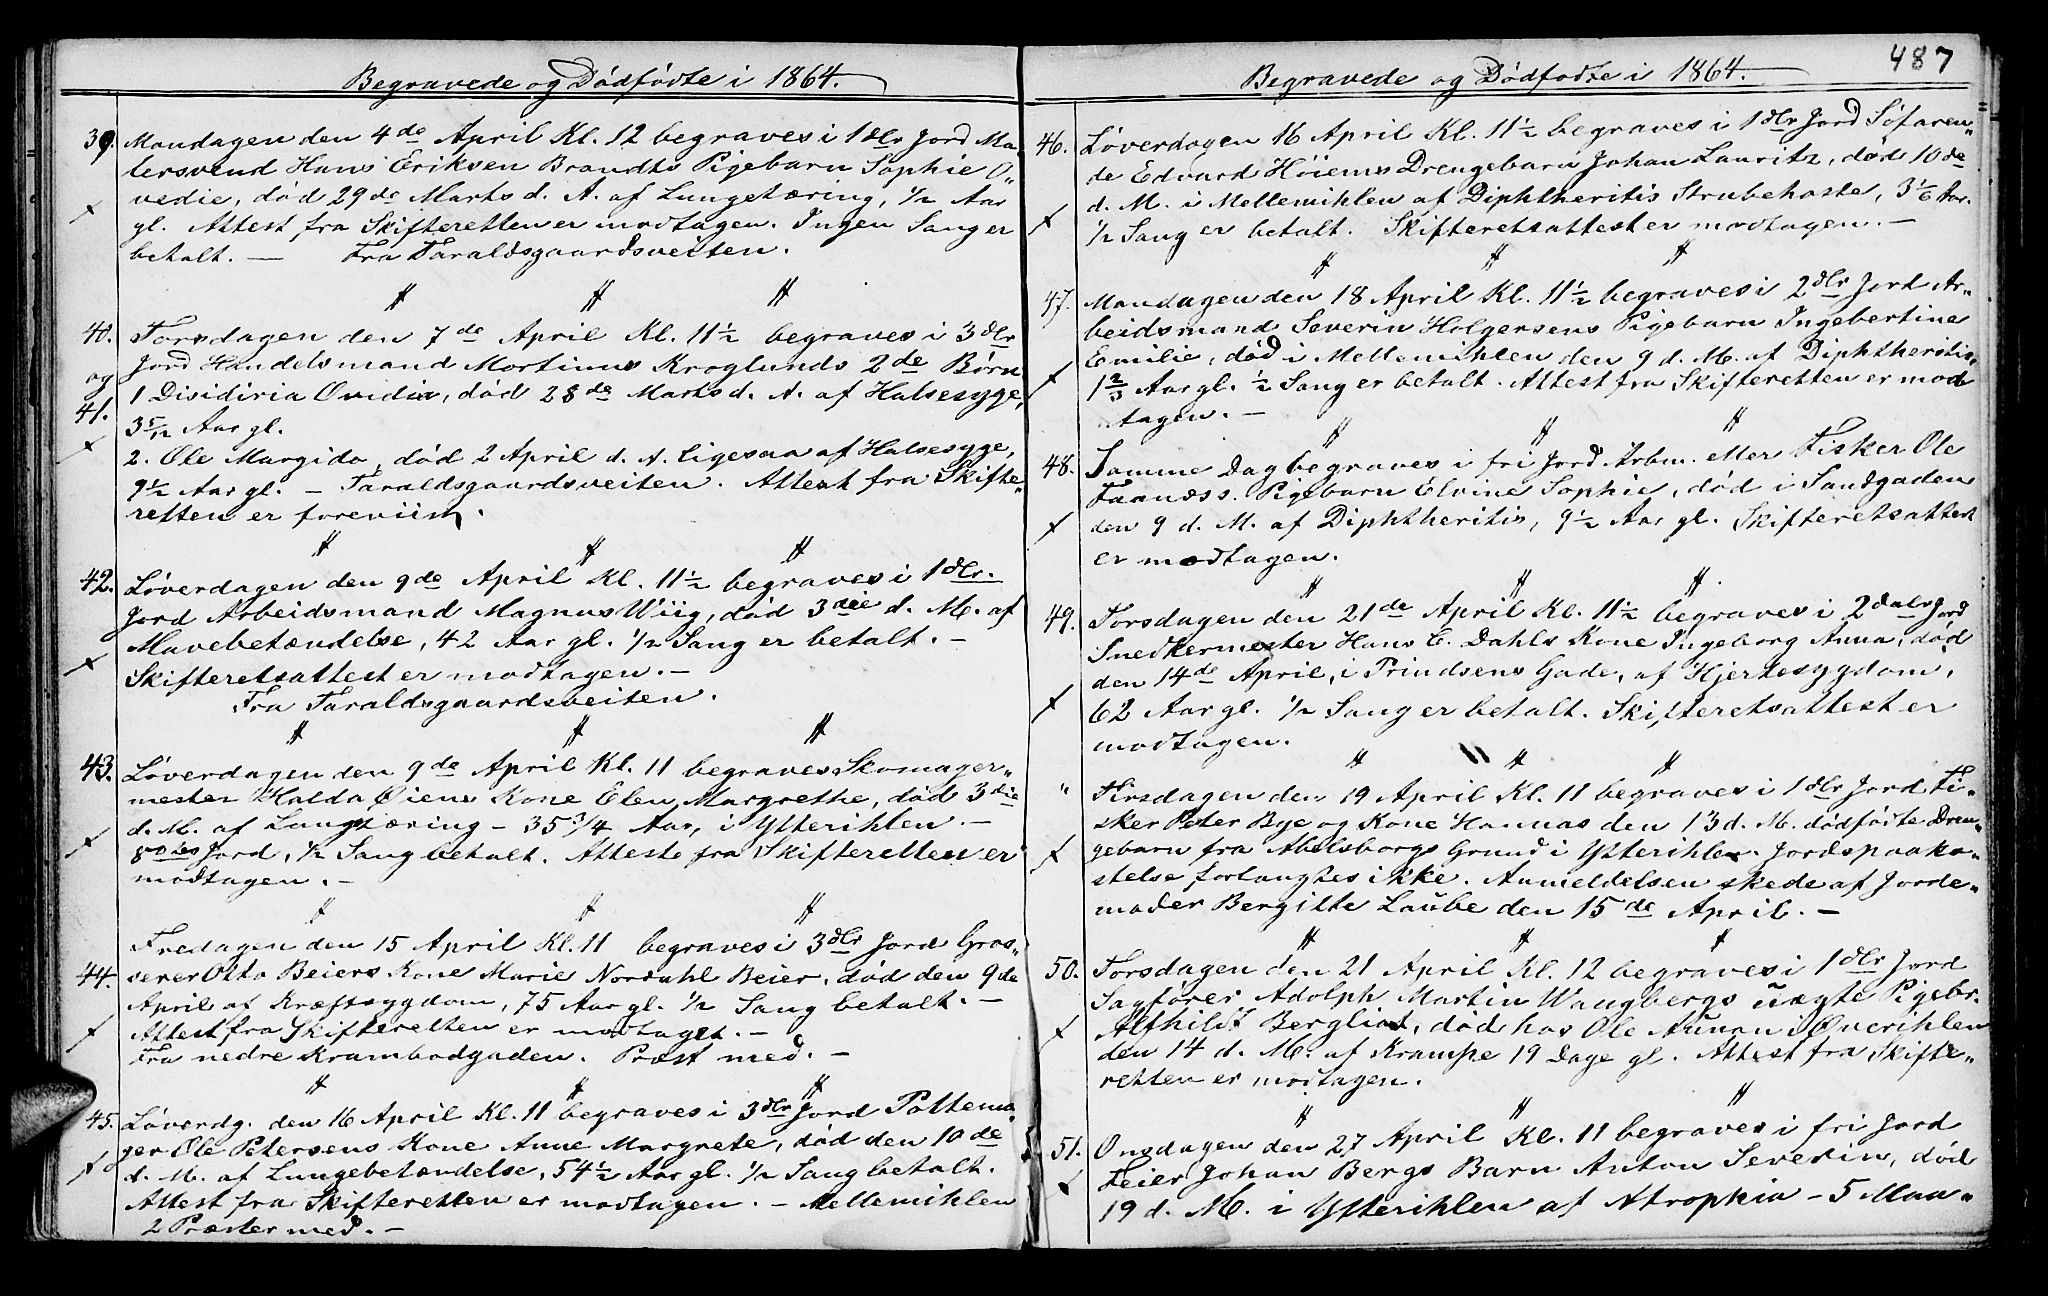 Begravede og Dödfödte i 1864.
39. Mandagen den 4de April Kl. 12 begraves i 1dlr Jord Ma-
lersvend Hans Eriksen Brandts Pigebarn Sophie O"
vedie, död 29de Marts d. A. af Lungetæring, 1/2 Aar
gl. Attest fra Skifteretten er modtagen. Ingen Sang er
betalt. — Fra Taraldsgaardsveiten.
40. Torsdagen den 7de April Kl. 11 1/2 begraves i 3dlr
og Jord Handelsmand Martinus Kroglunds 2de Börn
41. 1 Disidiria Ovidia, död 28de Marts d. A. af Halsesyge,
3 5/12 Aar gl.
2. Ole Margido, död 2 April d. A. ligesaa af Halsesyge,
9 1/2 Aar gl. — Taraldsgaardsveiten. Attest fra Skifte"
retten er foreviist.
42. Löverdagen den 9de April Kl. 11 1/2 begraves i 1dlr.
Jord Arbeidsmand Magnus Wiig, död 3die d. M. af
Mavebetændelse, 42 Aar gl. 1/2 Sang er betalt. —
Skifteretsattest er modtagen. —
Fra Taraldsgaardsveiten.
43. Löverdagen den 9de April Kl. 11 begraves Skomager"
mester Halda Øiens Kone Elen Margrethe, död 3die
d. M. af Lungetæring — 35 3/4 Aar, i Ytterihlen. —
Jord, 1/2 Sang betalt. Attest fra Skifteretten er
modtagen. —
Fredagen den 15 April Kl. 11 begraves i 3dlr Jord Gros"
44. serer Otto Beiers Kone Marie Nordahl Beier, död den 9de
April af Kræftsygdom, 75 Aar gl. 1/2 Sang betalt. —
Attest fra Skifteretten er modtaget. —
Fra nedre Krambodgaden. Præst med. —
45. Löverdg. den 16 April Kl. 11 begraves i 3dlr Jord Pottema-
ger Ole Petersens Kone Anne Margrete, död den 10de
d. M. af Lungebetændelse, 54 1/2 Aar gl. 1/2 Sang betalt.
Attest fra Skifteretten er modtagen. — Mellemihlen
2 Præster med. —
487
Begravede og Dödfodte i 1864.
46. Löverdagen 16 April Kl. 11 1/2 begraves i 1dlr Jord Söfaren"
de Edvard Höiems Drengebarn Johan Lauritz, död 10de
d. M. i Mellemihlen af Diphtheritis Strubehoste, 3 1/6 Aar.
1/2 Sang er betalt. Skifteretsattest er modtagen. —
47. Mandagen den 18 April Kl. 11 1/2 begraves i 2dlr Jord Ar"
beidsmand Severin Holgersens Pigebarn Ingebertine
Emilie, död i Mellemihlen den 9 d. M. af Diphtheritis,
1 2/3 Aar gl. 1/2 Sang er betalt. Attest fra Skifteretten er mod
tagen. —
48. Samme Dag begraves i fri Jord Arbm. eller Fisker Ole
Faanæss. Pigebarn Elvine Sophie, död i Sandgaden
den 9 d. M. af Diphtheritis, 9 1/2 Aar gl. Skifteretsattest
er modtagen.
49. Torsdagen den 21de April Kl. 11 1/2 begraves i 2dalr Jord
Snedkermester Hans C. Dahls Kone Ingeborg Anna, död
den 14de April, i Prindsens Gade, af Hjertesygdom,
62 Aar gl. 1/2 Sang er betalt. Skifteretsattest er
modtagen.
" Tirsdagen den 19 April Kl. 11 begraves i 1dlr Jord Fi"
sker Peter Bye og Kone Hannas den 13 d. M. dödfödte Dren"
gebarn fra Abelsborgs Grund i Ytterihlen. Jordspaaka"
stelse forlangtes ikke. Anmeldelsen skede af Jorde"
moder Bergitte Laube den 15de April. —
50. Torsdagen den 21 April Kl. 12 begraves i 1dlr Jord
Sagförer Adolph Martin Wangbergs uægte Pigebr.
Alfhildt Bergliot, död hos Ole Aunan i Øverihlen
den 14 d. M. af Krampe 19 Dage gl. Attest fra Skifte"
retten er modtagen.
51. Onsdagen den 27 April Kl. 11 begraves i fri Jord
Feier Johan Bergs Barn Anton Severin, död
19 d. M. i Ytterihlen af Atrophia — 5 Maa"